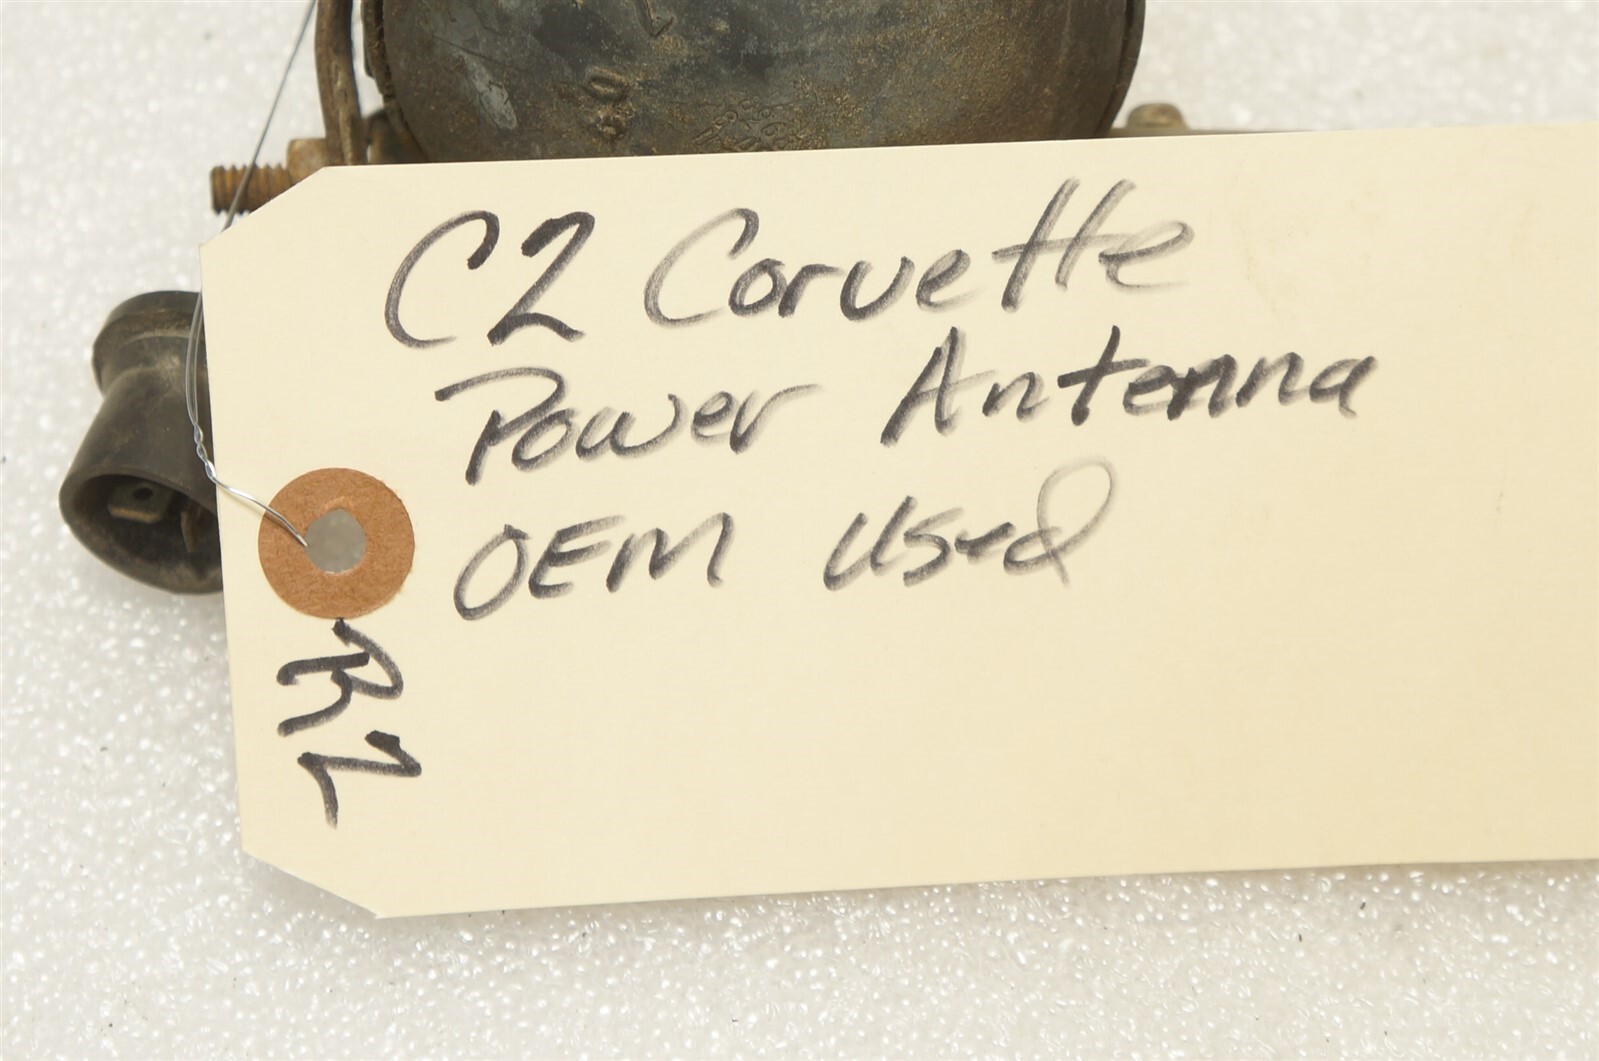 C2 Corvette
Power Antenna
OEM Used
R2